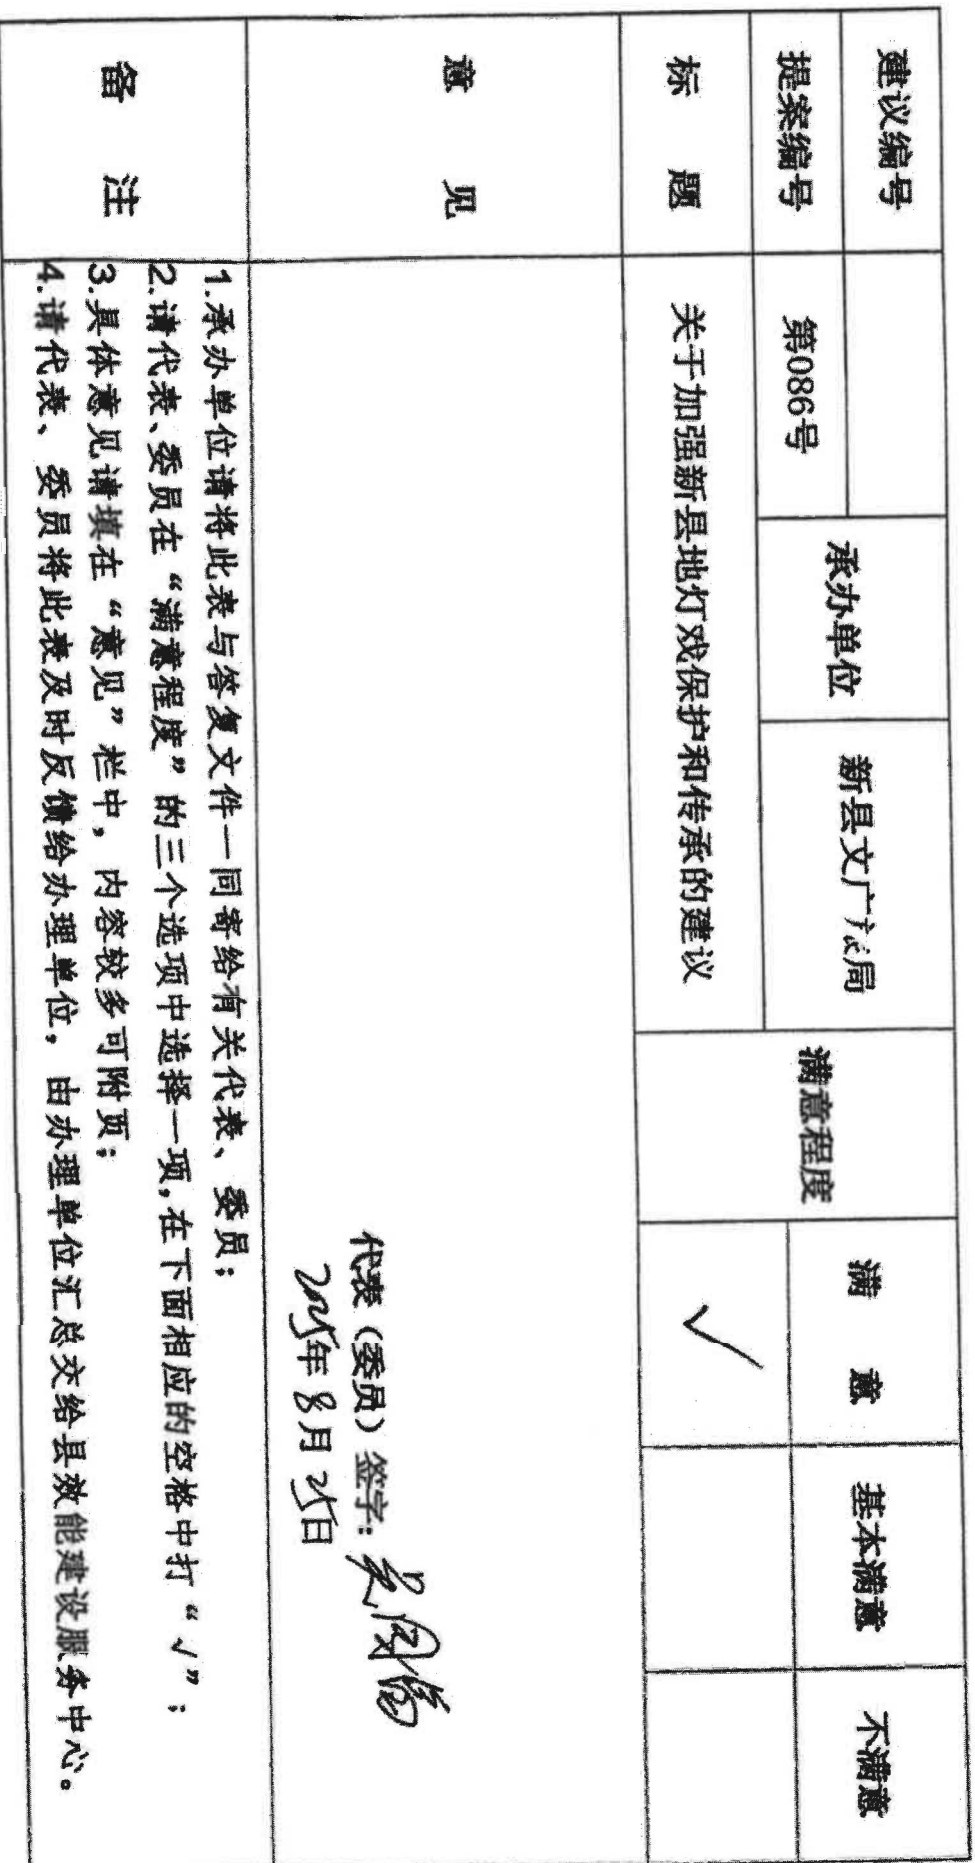 建议编号
承办单位
满意程度
满 意
基本满意
不满意
提案编号
第086号
新县文广旅局
标 题
关于加强新县地灯戏保护和传承的建议
✓
意 见
代表（委员）签字：
2025年8月25日
备 注
1.承办单位请将此表与答复文件一同寄给有关代表、委员；
2.请代表、委员在“满意程度”的三个选项中选择一项,在下面相应的空格中打“√”；
3.具体意见请填在“意见”栏中，内容较多可附页；
4.请代表、委员将此表及时反馈给办理单位，由办理单位汇总交给县效能建设服务中心。